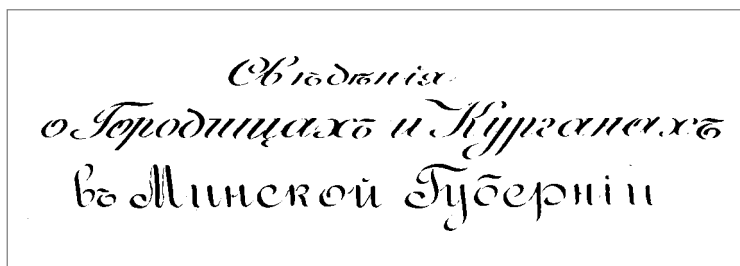 Свѣдѣнія
о Городищахъ и Курганахъ
въ Минской Губерніи